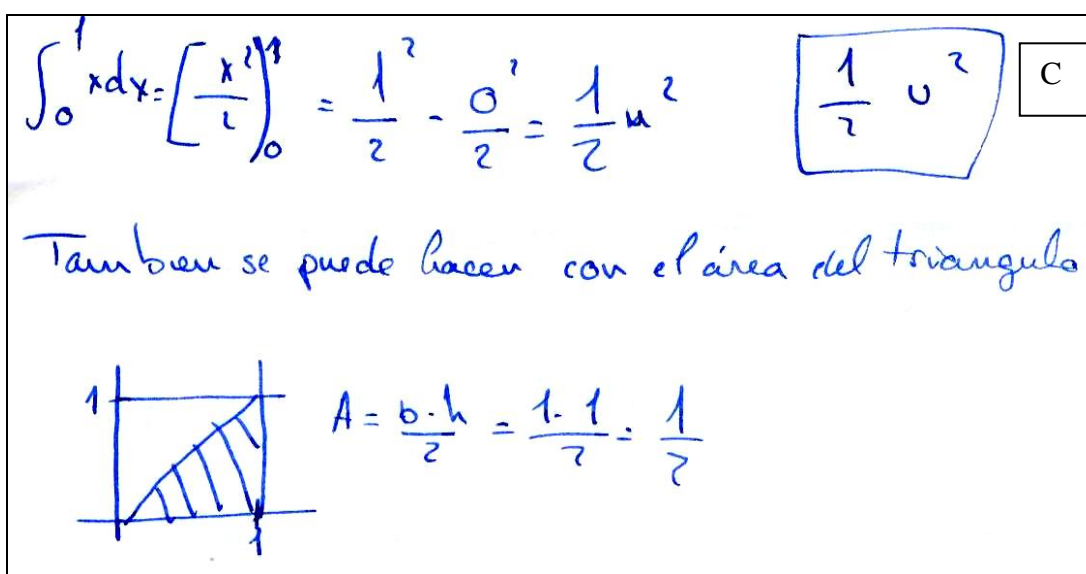 ∫₀¹ xdx = [x²/2]₀¹ = 1²/2 - 0²/2 = 1/2 u²
1/2 u²
C
Tambien se puede hacer con el área del triangulo
1
1
A = b·h/2 = 1·1/2 = 1/2